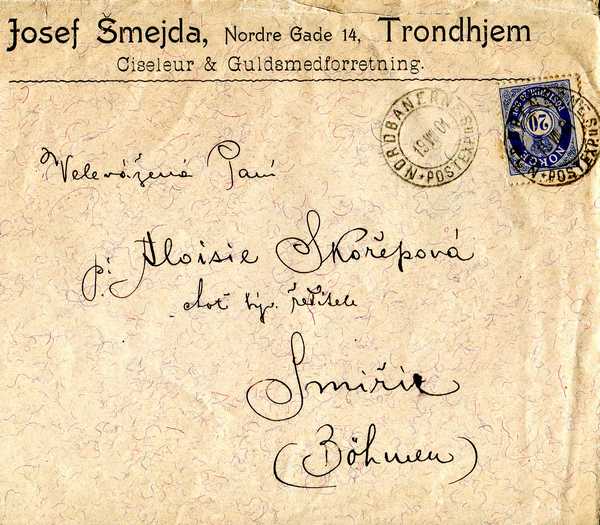 Josef Šmejda, Nordre Gade 14, Trondhjem
Ciseleur & Guldsmedforretning.
NORDBANERN
POSTEXP.
19 VII 01
20
NORGE
POSTEXP.
Velevážená Paní
pí Aloisie Skořepová
choť řiditele
Smiřic
(Böhmen)